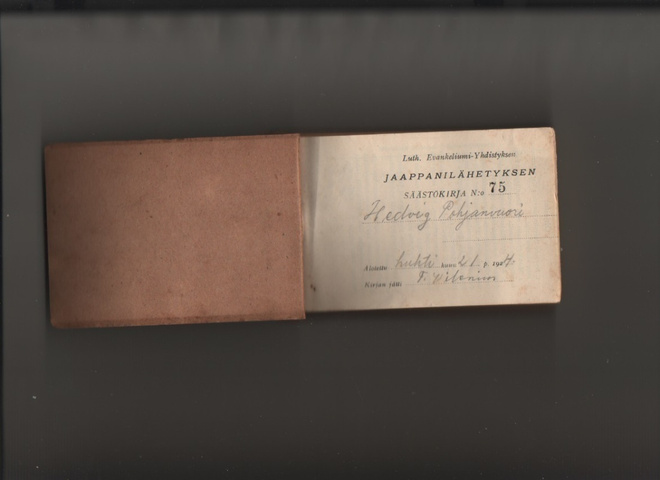 Luth. Evankeliumi-Yhdistyksen
JAAPPANILÄHETYKSEN
SÄÄSTÖKIRJA N:o 75
Hedvig Pohjanvuori
Alotettu huhti kuun 21 p. 1924.
Kirjan jätti F. Wilenius